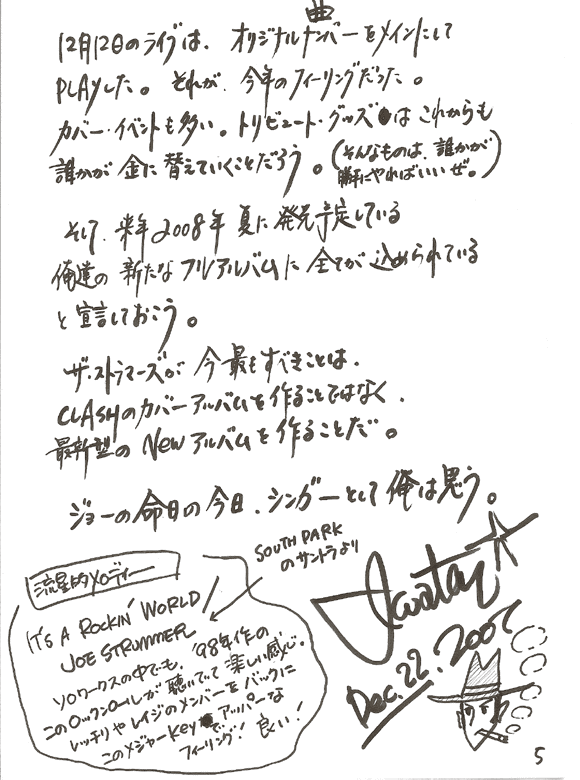 12月12日のライブは、オリジナルナンバー曲をメインにして
PLAYした。それが、今年のフィーリングだった。
カバー・イベントも多い。トリビュート・グッズはこれからも
誰かが金に替えていくことだろう。(そんなものは、誰かが
勝手にやればいいぜ。)
そして、来年2008年夏に発売予定している
俺達の新たなフルアルバムに全てが込められている
と宣言しておこう。
ザ・ストラマーズが今最もすべきことは、
CLASHのカバーアルバムを作ることではなく、
最新型のNewアルバムを作ることだ。
ジョーの命日の今日、シンガーとして俺は思う。
SOUTH PARK
のサントラより
流星的メロディー
IT'S A ROCKIN' WORLD
JOE STRUMMER
ソロワークスの中でも、'98年作の
このロックンロールが聴いてて楽しい感じ。
レッチリやレイジのメンバーをバックに
このメジャーkeyで、アッパーな
フィーリング! 良い!
Dec. 22. 2007
5